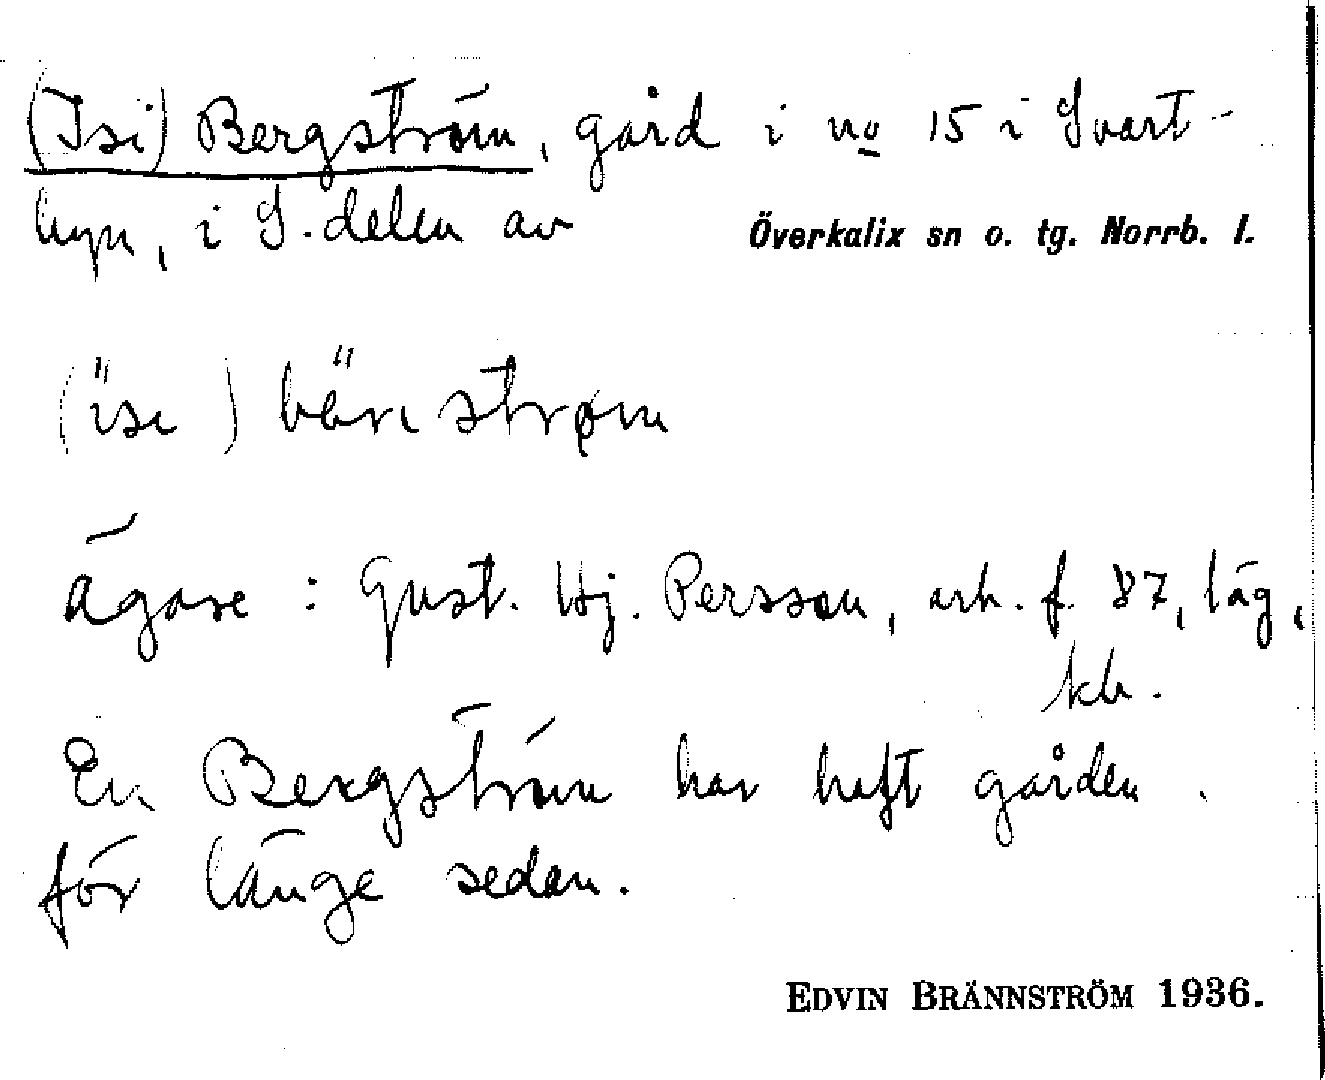 (Isi) Bergström, gård i no 15 i Svart-
byn, i S. delen av Överkalix sn o. tg. Norrb. l.
ägare: Gust. Hj. Persson, arb. f. 87, läg.
kb.
En Bergström har haft gården
för länge sedan.
EDVIN BRÄNNSTRÖM 1936.